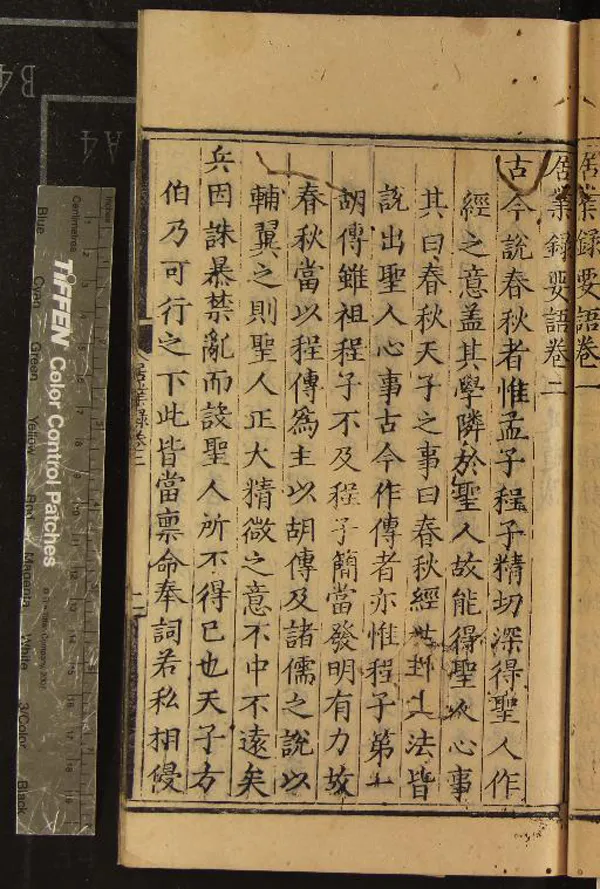 居業録要語卷一
居業録要語卷二
古今說春秋者惟孟子程子精切深得聖人作
經之意盖其學隣於聖人故能得聖人心事
其曰春秋天子之事曰春秋經世大法皆
說出聖人心事古今作傳者亦惟程子第一
胡傳雖祖程子不及程子簡當發明有力故
春秋當以程傳爲主以胡傳及諸儒之說以
輔翼之則聖人正大精微之意不中不遠矣
兵因誅暴禁亂而設聖人所不得已也天子方
伯乃可行之下此皆當禀命奉詞若私相侵
居業録卷二
一
B4
A4
Inches
Centimetres
TIFFEN Color Control Patches
© The Tiffen Company, 2007
Blue
Cyan
Green
Yellow
Red
Magenta
White
3/Color
Black